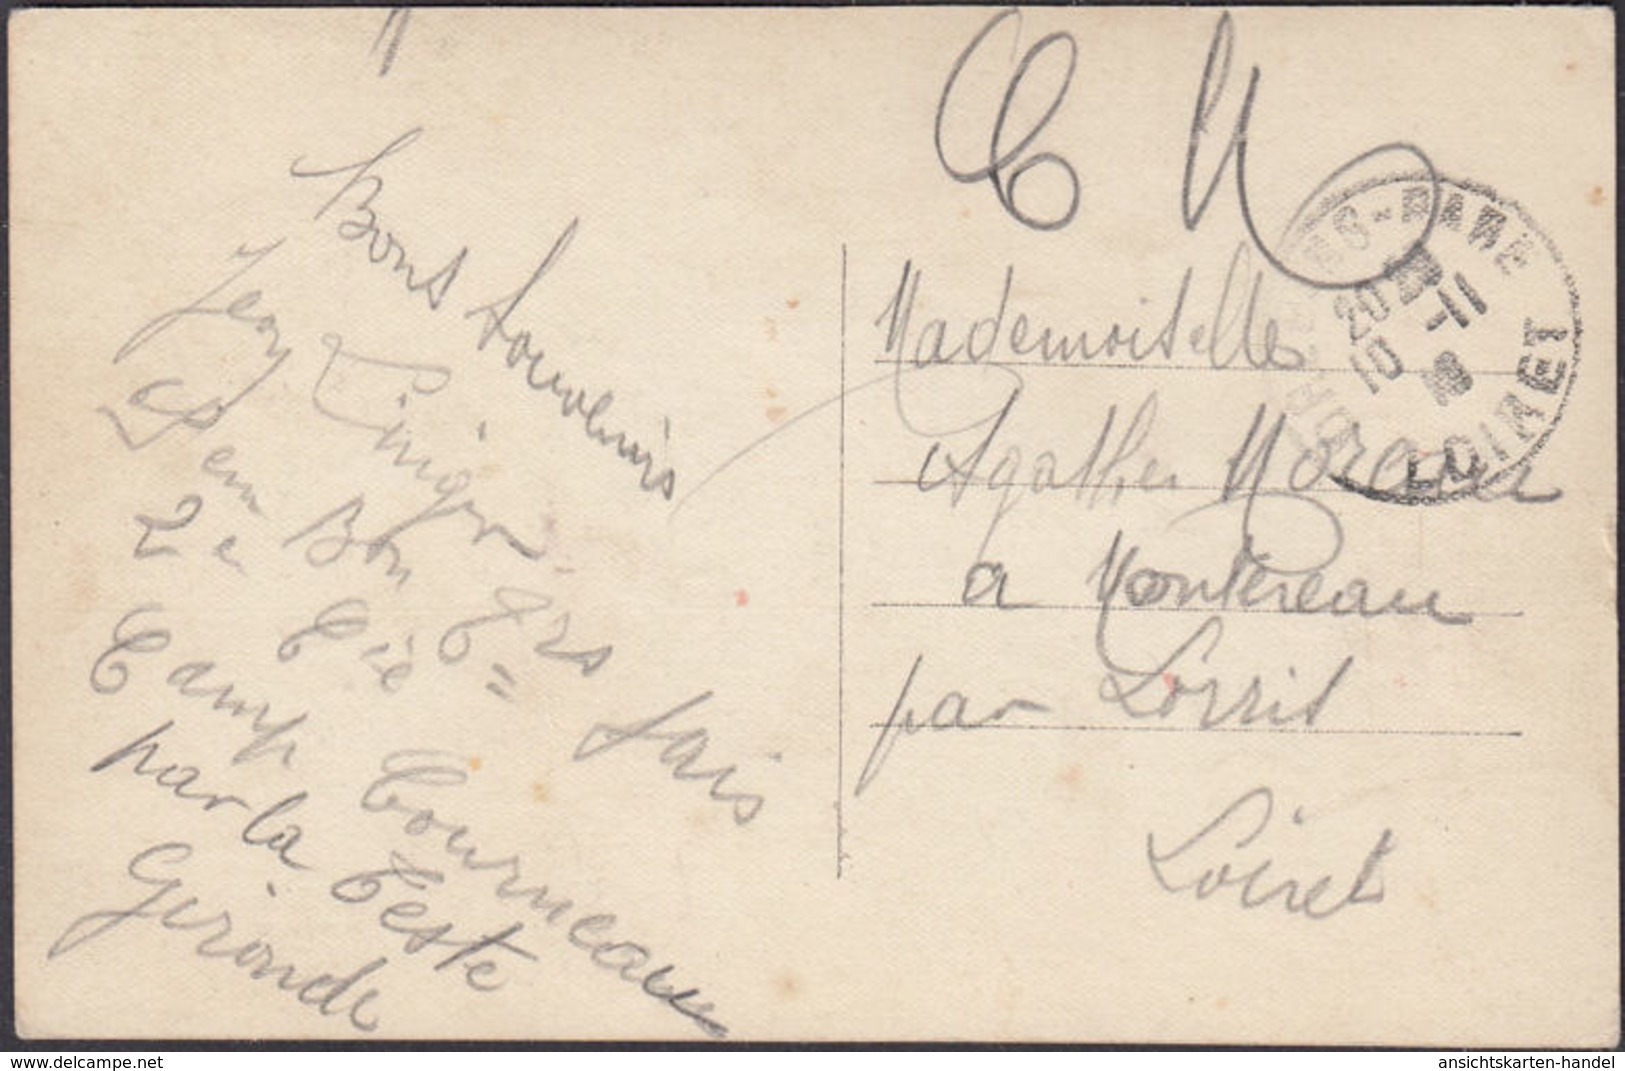 Bons Souvenirs
Jean Linger
Sen Bon Grs
2e Cie C= Sais
Camp Courneau
par la Teste
Gironde
C M
Mademoiselle
Agathe Moreau
a Montereau
par Lorris
Loiret
20 -11
10
LOIRET
www.delcampe.net
ansichtskarten-handel